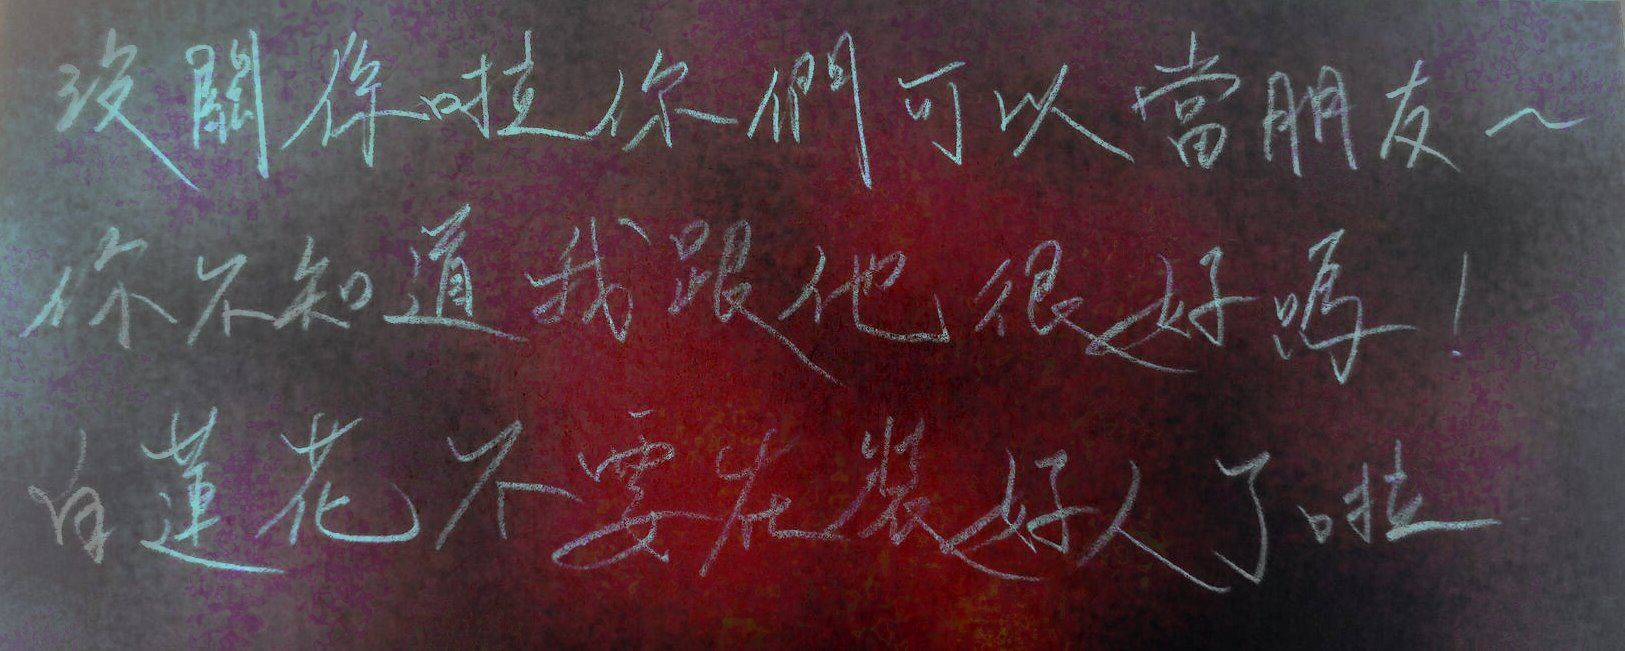 沒關係啦你們可以當朋友~
你不知道我跟他很好嗎!
白蓮花不要在裝好人了啦